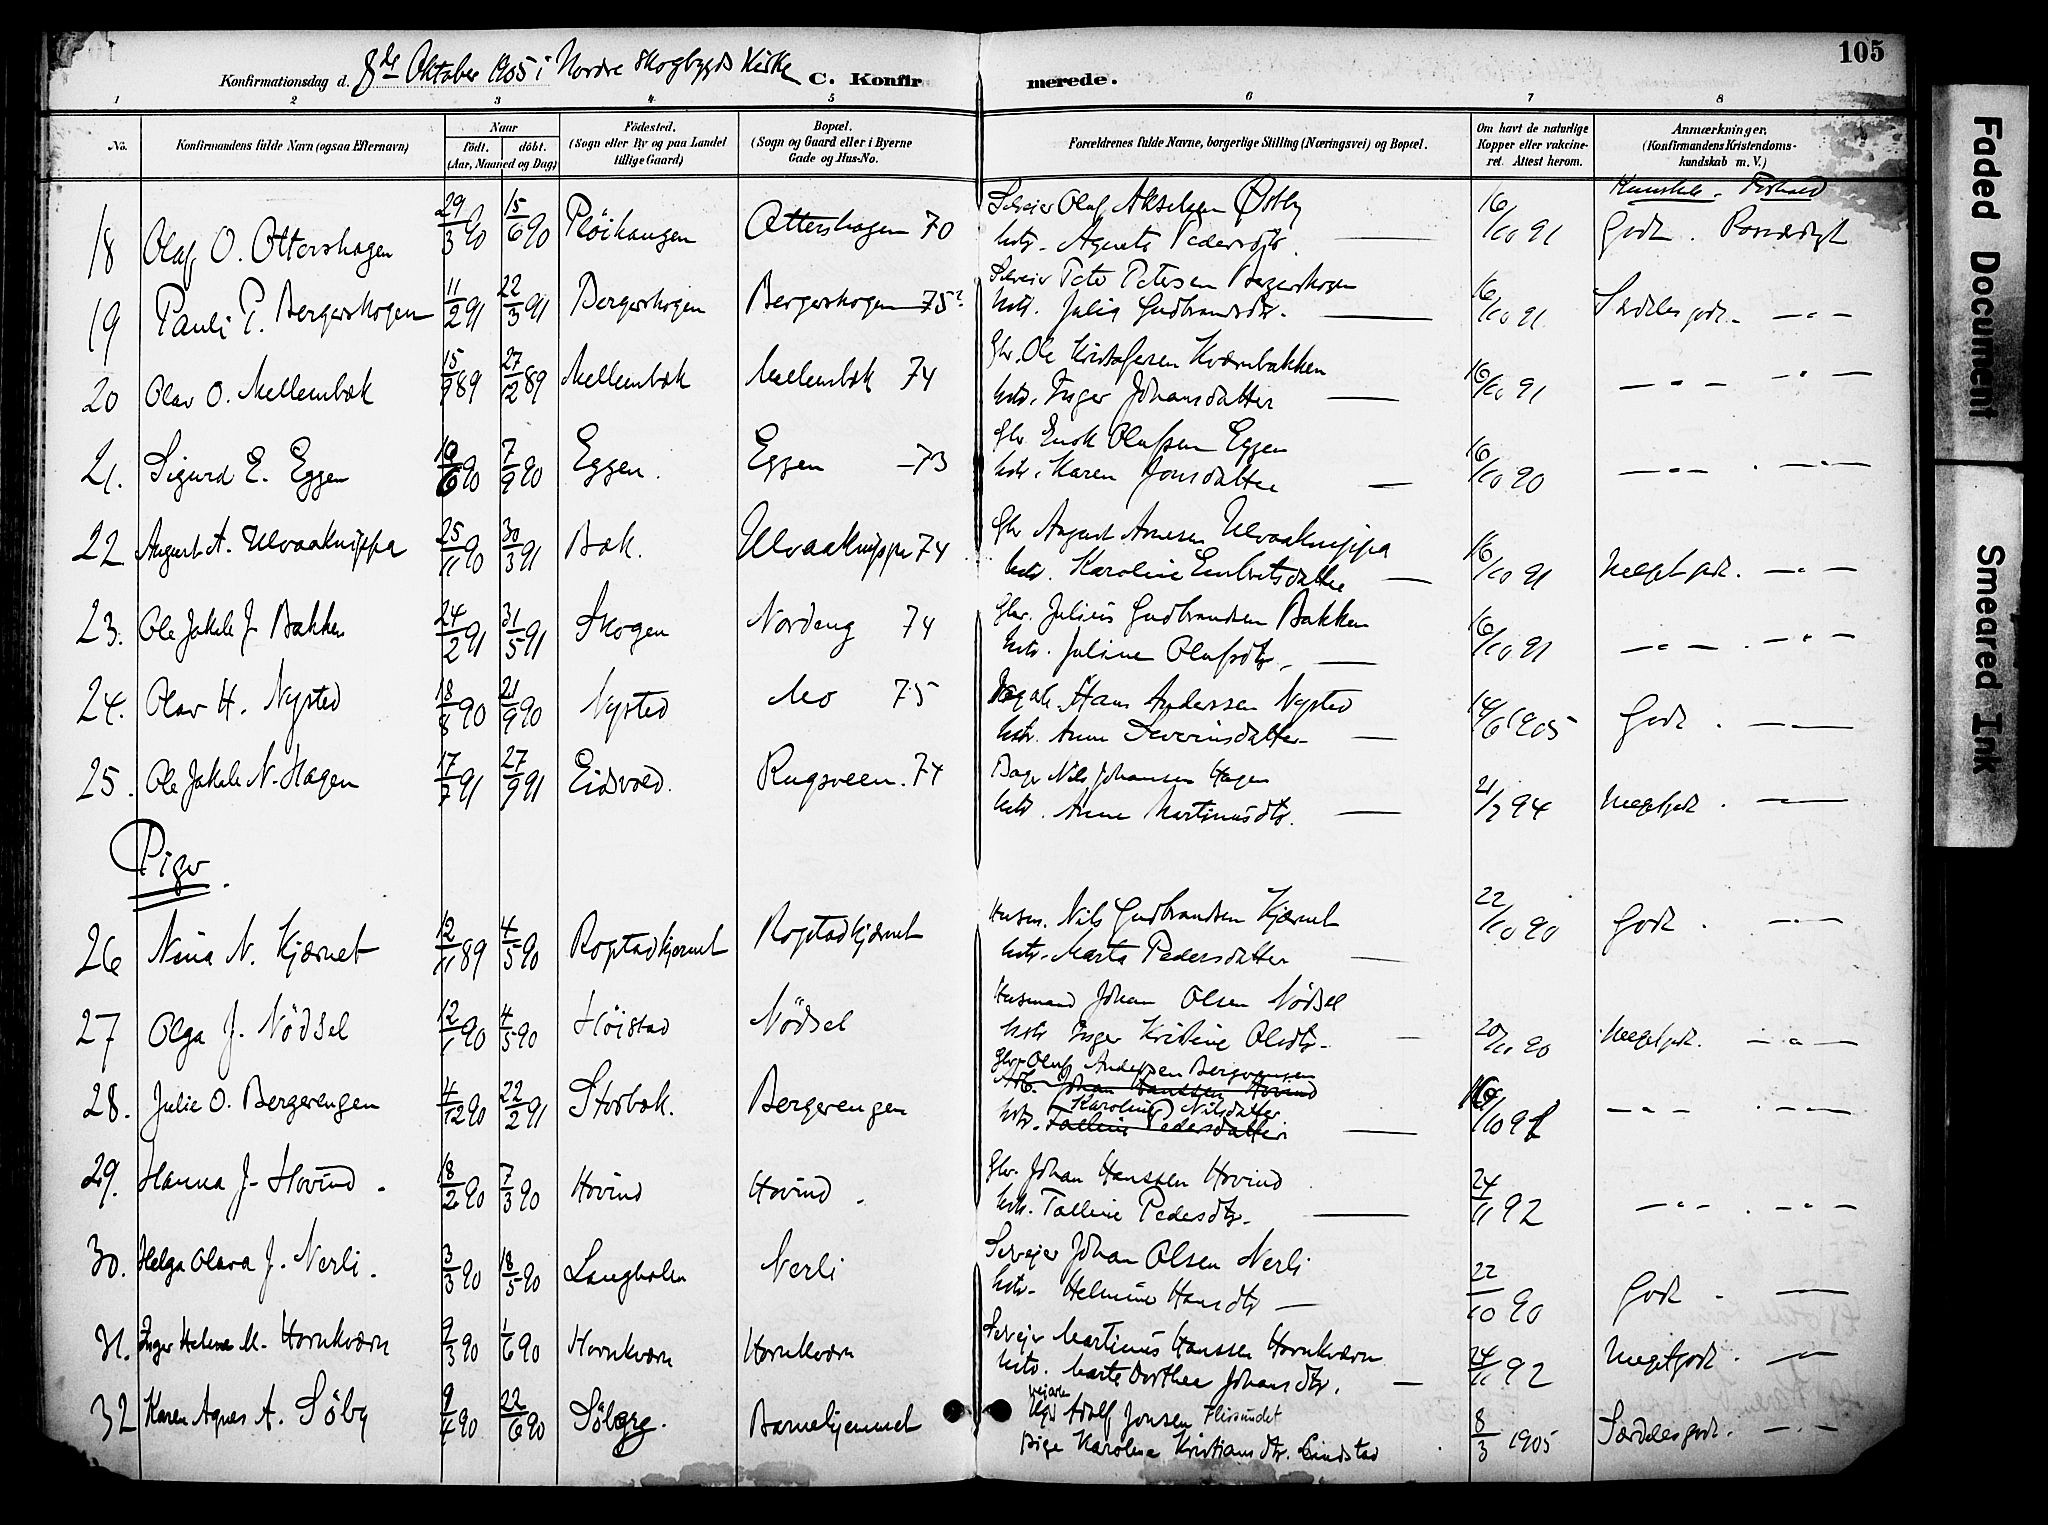 105
Konfirmationsdag d. 8de Oktober 1905 i Nordre Skogbygds Kirke C. Konfirmerede.
1 2 3 4 5 6 7 8
No. Konfirmandens fulde Navn (ogsaa Efternavn) Naar født. døbt. (Aar, Maaned og Dag) Fødested. (Sogn eller By og paa Landet tillige Gaard) Bopæl. (Sogn og Gaard eller i Byerne Gade og Hus-No. Forældrenes fulde Navne, borgerlige Stilling (Næringsvei) og Bopæl. Om havt de naturlige Kopper eller vakcineret. Attest herom. Anmærkninger. (Konfirmandens Kristendomskundskab m. V.)
Kunnskab. Forhold
18 Olaf O. Ottershagen 29/3 90 15/6 90 Pløihaugen Ottershagen 70 Selveier Olaf Akselsen Østby 16/10 91 Godt. Roværdigt
Hstr. Agnete Pedersdtr. —
19 Pauli P. Bergerskogen 11/2 91 22/3 91 Bergerskogen Bergerskogen 75? Selveier Peter Petersen Bergerskogen 16/10 91 Særdeles godt. — " —
Hstr. Julia Gudbrandsdtr. —
20 Olav O. Mellembæk 15/9 89 27/12 89 Mellembæk Mellembæk 74 Gbr. Ole Kristofersen Kværnbakken 16/10 91 — " — — " —
Hstr. Inger Johansdatter —
21. Sigurd E. Eggen 10/6 90 7/9 90 Eggen. Eggen — 73 Gbr Enok Olafsen Eggen 16/10 90 — " — . — " —
Hstr. Karen Jonsdatter —
22 August A. Ulvaaknippa 25/11 90 30/3 91 Bæk. Ulvaaknippa 74 Gbr August Arnesen Ulvaaknippa 16/10 91 Meget godt. — " —
Hstr. Karoline Embretsdatter —
23. Ole Jakob J. Bakken 24/2 91 31/5 91 Skogen Nordeng 74 Gbr. Julius Gudbrandsen Bakken 16/10 91 — " — . — " —
Hstr. Juline Olafsdtr. —
24. Olav H. Nysted 18/8 90 21/9 90 Nysted Mo 75 Hans Andersen Nysted 14/6 1905 Godt . —
Hstr. Anne Severinsdatter —
25. Ole Jakob N. Hagen 17/7 91 27/9 91 Eidsvold. Rugsveen. 74 Bager Nils Johansen Hagen 21/7 94 Meget godt . —
Hstr. Anne Martinusdtr. —
Piger.
26 Nina N. Kjærnet 12/11 89 4/5 90 Rogstadkjernet Rogstadkjærnet Husm. Nils Gudbrandsen Kjærnet 22/10 90 Godt . — " —
Hstr. Marta Pedersdatter —
27 Olga J. Nödsel 12/1 90 4/5 90 Höistad Nödsel Husmand Johan Olsen Nödsel 20/10 90 Meget godt. — " —
Hstr Inger Kristine Olsdtr. —
28. Julie O. Bergerengen 4/12 90 22/2 91 Storbæk. Bergerengen Gbr. Oluf Andersen Bergerengen 16/10 91 — " — . — " —
Arb. Johan Hanssen Hovind
Karoline Nilsdatter
Hstr. Talline Pedersdatter —
29. Hanna J. Hovind. 18/2 90 7/3 90 Hovind Hovind. Gbr. Johan Hanssen Hovind 24/11 92 — " — . — " —
Hstr. Talline Pedersdtr. —
30. Helga Olava J. Nerli. 3/3 90 18/5 90 Langholen Nerli Selveier Johan Olsen Nerli 22/10 90 Godt . —
Hstr. Helmine Hansdtr —
31. Inger Helene M. Hornkværn 9/3 90 1/6 90 Hornkværn Hornkværn Selveier Martinus Hanssen Hornkværn 24/11 92 Meget godt . — " —
Hstr. Marte Dorthea Johansdtr. —
32 Karen Agnes A. Söby 9/4 90 22/6 90 Söberg. Barnehjemmet Adolf Jonsen Flisundet 8/3 1905 Særdeles godt. — " —
Pige Karoline Kristiansdtr. Lindstad
Faded Document
Smeared Ink